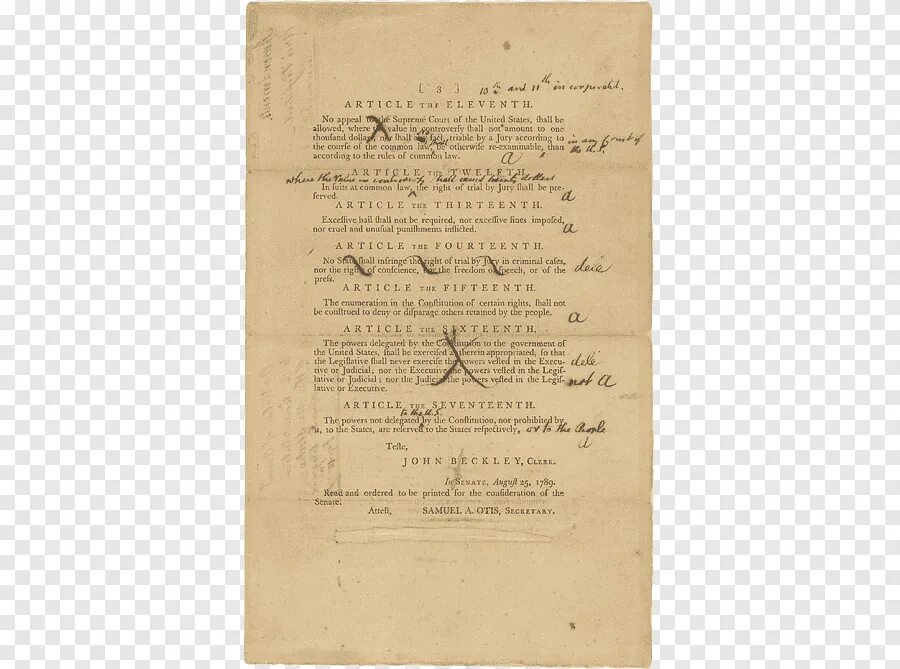 [ 3 ] 10th and 11th incorporated.
ARTICLE THE ELEVENTH.
No appeal to the Supreme Court of the United States, ſhall be
allowed, where the value in controverſy ſhall not amount to one
thouſand dollars, nor ſhall any fact, triable by a Jury according to
the courſe of the common law, be otherwiſe re-examinable, than in any Court of
according to the rules of common law. the U.S.
a
ARTICLE THE TWELFTH.
where the value in controversy shall exceed twenty dollars
In ſuits at common law, ^ the right of trial by Jury ſhall be pre-
ſerved. a
ARTICLE THE THIRTEENTH.
Exceſſive bail ſhall not be required, nor exceſſive fines impoſed,
nor cruel and unuſual puniſhments inflicted. a
ARTICLE THE FOURTEENTH.
No State ſhall infringe the right of trial by Jury in criminal caſes,
nor the rights of conſcience, nor the freedom of ſpeech, or of the dele
preſs.
ARTICLE THE FIFTEENTH.
The enumeration in the Conſtitution of certain rights, ſhall not
be conſtrued to deny or diſparage others retained by the people. a
ARTICLE THE SIXTEENTH.
The powers delegated by the Conſtitution to the government of
the United States, ſhall be exerciſed as therein appropriated, ſo that
the Legiſlative ſhall never exerciſe the powers veſted in the Execu- dele
tive or Judicial; nor the Executive the powers veſted in the Legiſ-
lative or Judicial; nor the Judicial the powers veſted in the Legiſ- not a
lative or Executive.
ARTICLE THE SEVENTEENTH.
to the U.S.
The powers not delegated by the Conſtitution, nor prohibited by
it, to the States, are reſerved to the States reſpectively, or to the People
a
Teſte,
JOHN BECKLEY, CLERK.
In SENATE, Auguſt 25, 1789.
Read and ordered to be printed for the conſideration of the
Senate.
Atteſt, SAMUEL A. OTIS, SECRETARY.